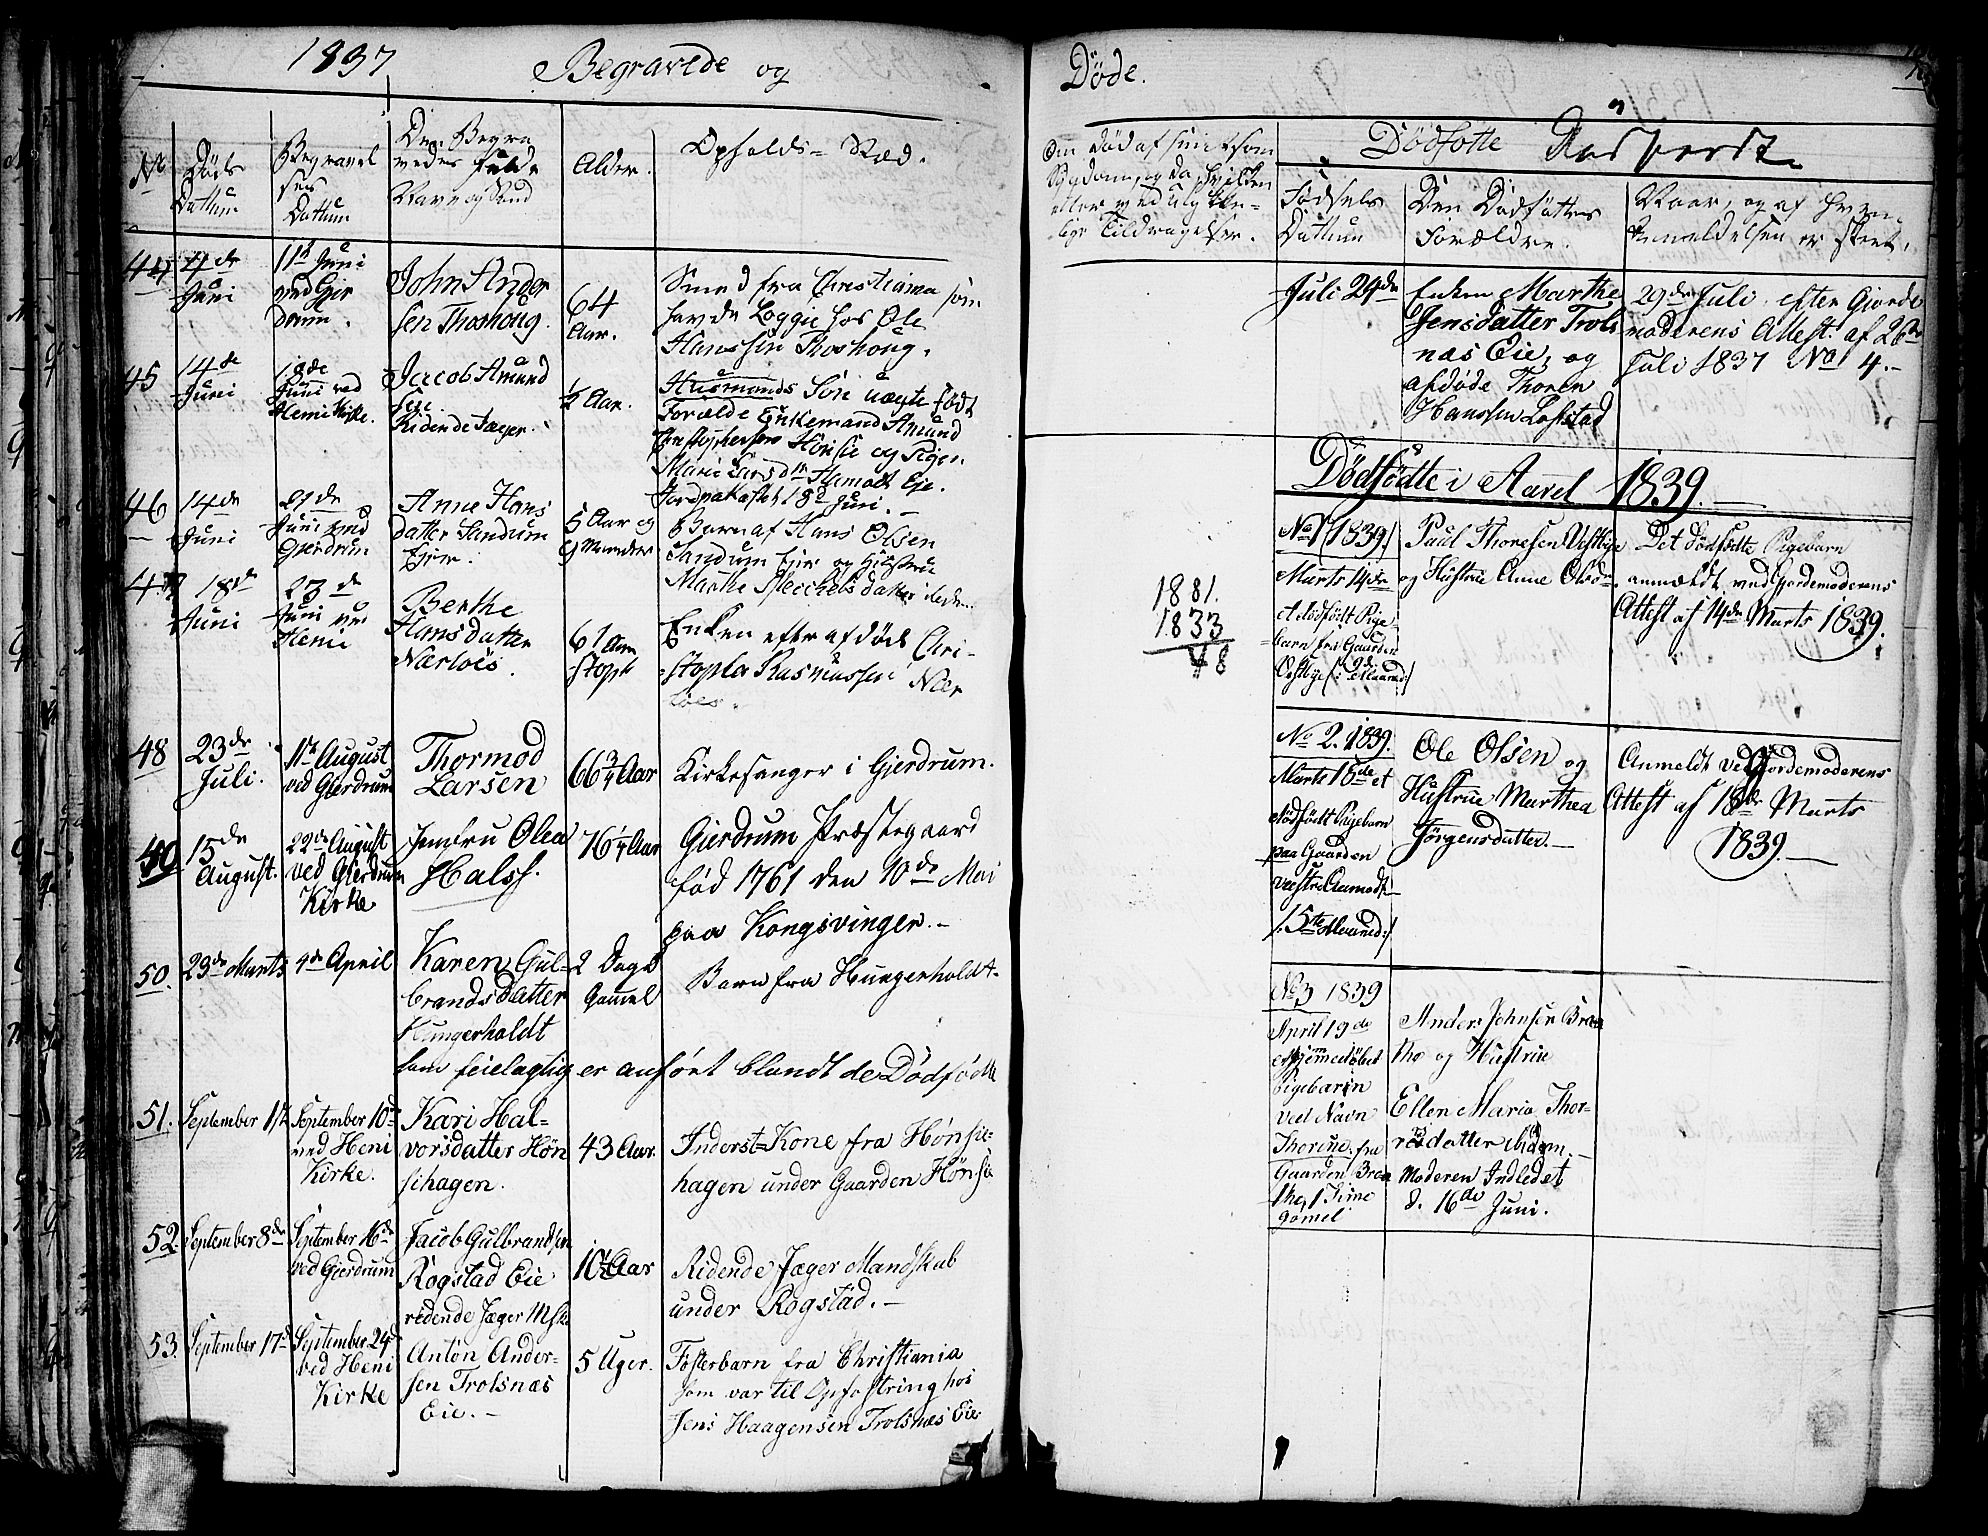 1837
Begravede og
No
Døds
Dathum
Begravel
ses
Dathum
Den Begra
vedes fulde
Navn og Stand
Alder.
Opholds=Sted.
44
4de
Juni
11te Juni
ved Gjer
drum.
John Ander
sen Thoshoug.
64
Aar.
Smed fra Christiania som
havde Loggie hos Ole
Hanssen Thoshoug.
45
14de
Juni
18de
Juni ved
Heni Kirke.
Jacob Amund
sen
Ridende Jæger.
½ Aar.
Husmands Søn uægte født
Forælde Enkemand Amund
Christophersen Hønsie og Pigen
Marie Larsdtr Hamodt Eje.
Jordpaakastet 18de Juni.-
46
14de
Juni
21de
Juni ved
Gjerdrum
Anne Hans
datter Sandum
Ejer.
5 Aar og
9 Maaneder
Barn af Hans Olsen
Sandum Ejer og Hustrue
Marthe datter
47
18de
Juni
23de
Juni ved
Heni
Berthe
Hansdatter
Nærløis.
61 Aar
Enken efter afdøde Chri-
stopher Rasmussen Nær
løes.
48
23de
Juli.
1te August
ved Gjerdrum
Thormod
Larsen
66¾ Aar
Kirkesanger i Gjerdrum.
49
15de
August.
22de August
ved Gjerdrum
Kirke
Jomfru Olea
Halss.
76¼ Aar
Gjerdrum Præstegaard
fød 1761 den 10de Mai
paa Kongsvinger.-
50.
23de Marts
4de April
Karen Gul-
brandsdatter
Hungerholdt
2 Dage
Gammel
Barn fra Hungerholdt-
som feielagtig er anført blandt de Dødfødte
51.
September 1te
September 10de
ved Heni
Kirke.
Kari Hal-
vorsdatter Høn
sihagen.
43 Aar.
Inderst=Kone fra Hønsie-
hagen under Gaarden Hønsie
52
September 8de
September 16de
ved Gjerdrum
Jacob Gulbrandsen
Rogstad Eie
redende Jæger Msk.
Aar
Ridende Jæger Mandskab
under Rogstad.-
53.
September 17de
September 24de
ved Heni
Kirke
Anton Ander-
sen Trolsnæs
Eie.-
5 Uger.
Fosterbarn fra Christiania
som var til Opfostring hos
Jens Haagensen Trolsnæs Eie
Døde.
Om Død af
Sygdom, og da hvilken
eller ved ulykke-
lige Tildragelser.
Dødføtte
Fødsels
Dathum
Den Dødføttes
Forældre.
Naar, og af hvem
Anmeldelsen er skeet.
Juli 24de
Enken Marthe
Jensdatter Trols
næs Eie, og
afdøde Thoren
Hanssen Løfstad
29de Juli efter Gjorde
moderens Attest. af 26de
Juli 1837 No 4.-
Dødfødte i Aaret 1839.
No 1 (1839)
Marts 14de
et dødfødt Pige-
barn fra Gaarden
Vestbye
Paul Thoresen Vestbye
og Hustrue Anne Olsd-
Det dødfødte Pigebarn
anmældt ved Gjordemoderens
Attest af 14de Marts 1839.
1881.
1833
48
No 2. 1839.
Marts 18de et
dødfødt Pigebarn
paa Gaarden
/:5te Maaned:/
Ole Olsen og
Hustrue Marthea
Jørgensdatter.-
Anmeldt ved Gjordemoderens
Attest af 18de Marts
1839.-
No 3 1839
April 19de
et hjemmedøbet
Pigebarn
ved Navn
Thorine fra
Gaarden Braa
the, 1 Time
gamel
Anders Johnsen Braa
the og Hustrue
Ellen Maria Thor-
datter
Moderen Indledet
d. 16de Juni.